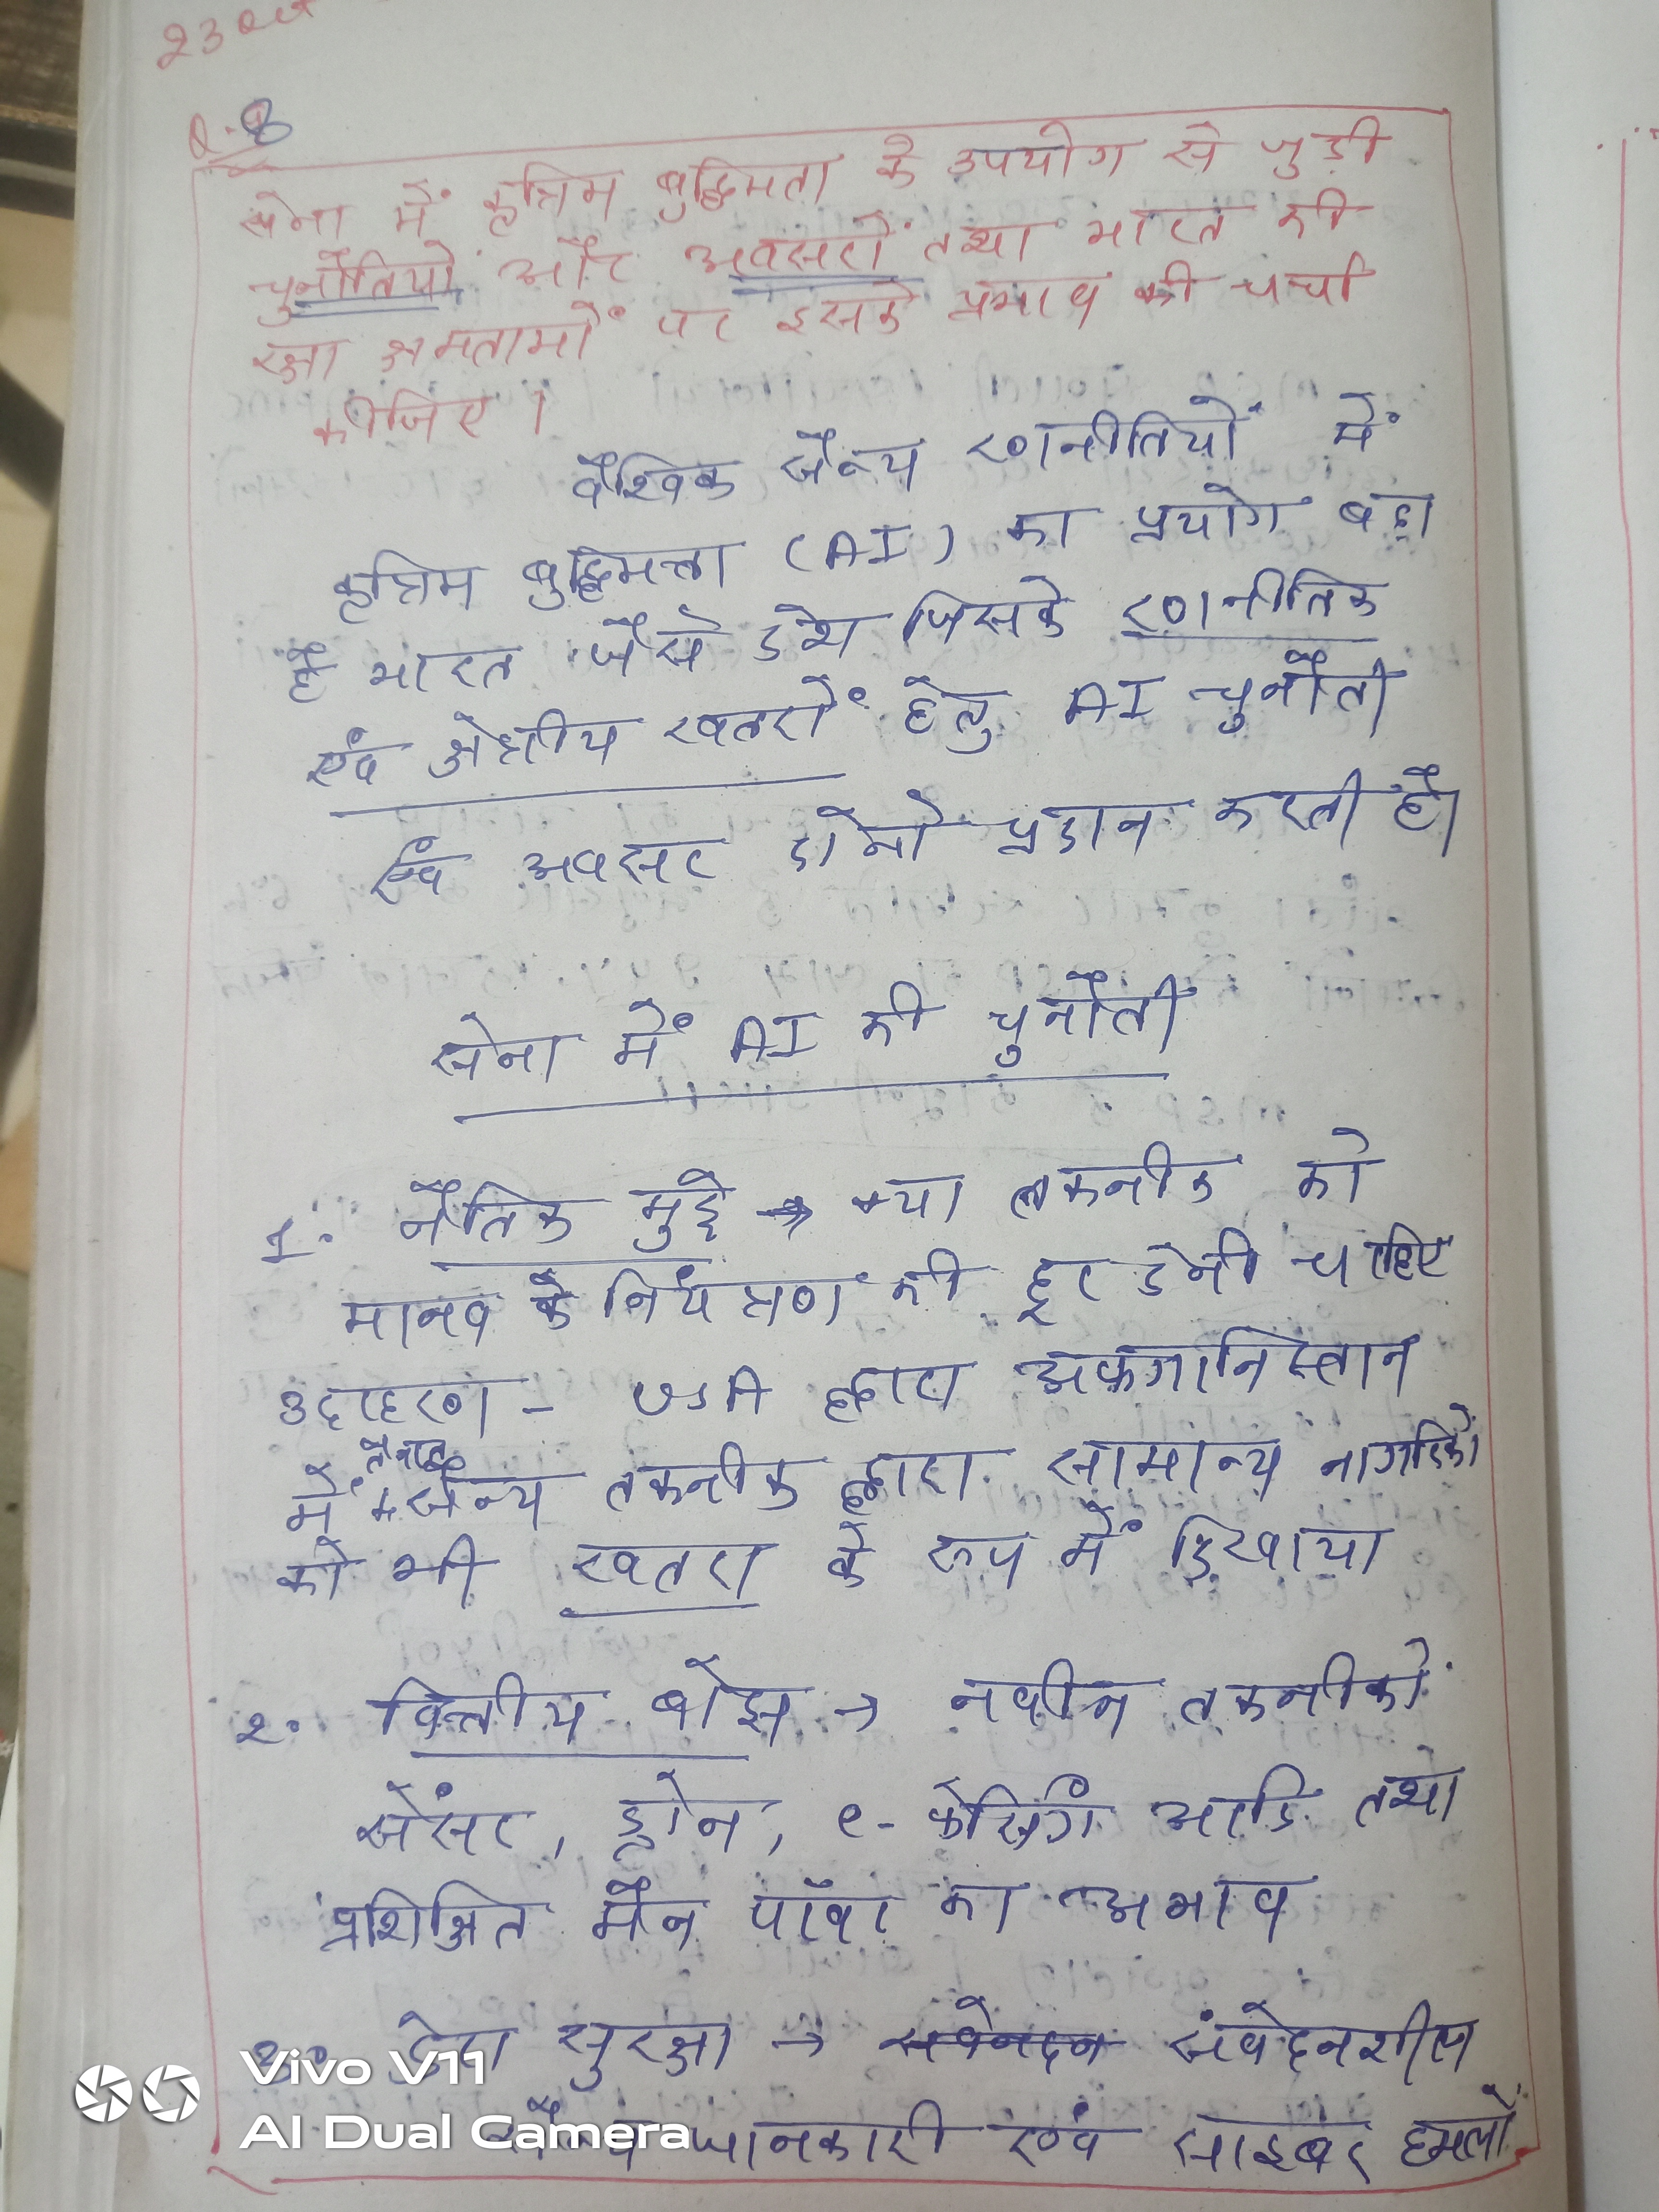 23 Oct
Q.8
सेना में कृत्रिम बुद्धिमता के उपयोग से जुड़ी
चुनौतियों और अवसरों तथा भारत की
रक्षा क्षमताओं पर इसके प्रभाव की चर्चा
कीजिए।
वैश्विक सैन्य रणनीतियों में
कृत्रिम बुद्धिमत्ता (AI) का प्रयोग बढा
है भारत जैसे देश जिसके रणनीतिक
एवं क्षेत्रीय खतरों हेतु AI चुनौती
एवं अवसर दोनो प्रदान करती है।
सेना में AI की चुनौती
1. नैतिक मुद्दे → क्या तकनीक को
मानव के नियंत्रण की दूर देनी चाहिए
उदाहरण - USA द्वारा अफगानिस्तान
में तैनात सैन्य तकनीक द्वारा सामान्य नागरिको
को भी खतरा के रूप में दिखाया
2. वित्तीय बोझ → नवीन तकनीकों
सेंसर, ड्रोन, e- फेंसिंग आदि तथा
प्रशिक्षित मैन पॉवर का अभाव
3. डेटा सुरक्षा → संवेदनशील
सैन्य जानकारी एवं साइबर हमलों
Vivo V11
AI Dual Camera